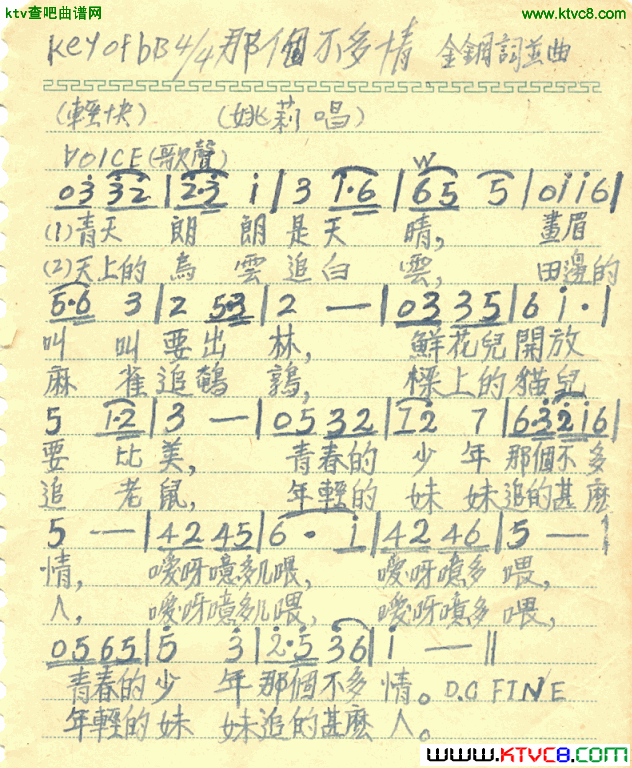 ktv查吧曲谱网 www.ktvc8.com
key of bB 4/4 那個不多情 金鋼詞並曲
(輕快) (姚莉唱)
VOICE(歌聲)
03 32 | 2·3 i | 3 i·6 | 65 5 | 0 i i 6 |
(1)青天 朗 朗是天 晴, 畫眉
(2)天上的 烏 雲追白 雲, 田邊的
5·6 3 | 2 5·3 | 2 — | 03 35 | 6 i· |
叫 叫要出 林, 鮮花兒開放
麻 雀追鵪 鶉, 樑上的貓兒
5 i·2 | 3 — | 05 32 | i2 7 | 63 2i6 |
要 比美, 青春的 少 年 那個不多
追 老鼠, 年輕的 妹 妹追的甚麼
5 — | 42 45 | 6 · i | 42 46 | 5 — |
情, 噯呀噫多兒喂, 噯呀噫多 喂,
人, 噯呀噫多兒喂, 噯呀噫多 喂,
05 65 | 5 3 | 2·5 36 | i — ‖
青春的少 年那個不多 情。D.C FINE
年輕的妹 妹追的甚麼 人。
www.KTVC8.com